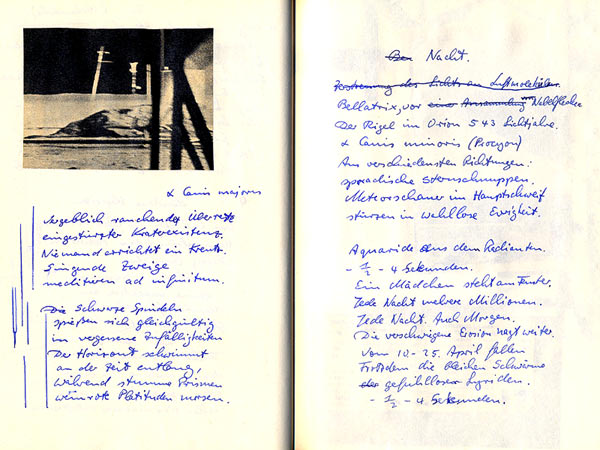 α Canis majoris
Vergeblich rauchende überreste
eingestürzter Kraterexistenz.
Niemand errichtet ein Kreuz.
Singende Zweige
meditieren ad infinitum.
Die schwarze Spindeln
spießen sich gleichgültig
in vergessene Zufälligkeiten
Der Horizont schwimmt
an der Zeit entlang,
während stumme Prismen
weinrote Platituden
Nacht.
Zerstreuung des Lichts an Luftmolekülen.
Bellatrix, vor einer Ansammlung von Nebelflecken
Der Rigel im Orion 543 Lichtjahre.
α Canis minoris (Procyon)
Aus verschiedensten Richtungen:
sporadische Sternschnuppen.
Meteorschauer im Hauptschweif
stürzen in wahllose Ewigkeit.
Aquaride aus dem Radianten.
- 1/2 - 4 Sekunden.
Ein Mädchen steht am Fenster.
Jede Nacht mehrere Millionen.
Jede Nacht. Auch Morgen.
Die verschwiegene Erosion nagt weiter.
Vom 12-25. April fallen
Trotzdem die bleichen Schwärme
der gefühllosen Lyriden.
- 1/2 - 4 Sekunden.